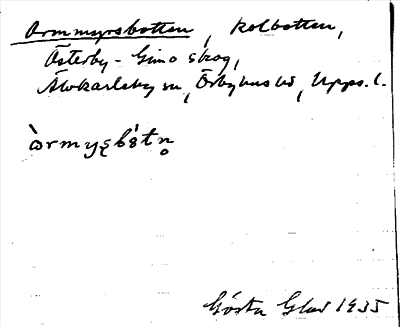 Ormmyrsbotten, kolbotten,
Österby - Gimo skog,
Älvkarleby sn, Örbyhus hd, Upps. l.
òrmyʂbót
Gösta Glad 1935